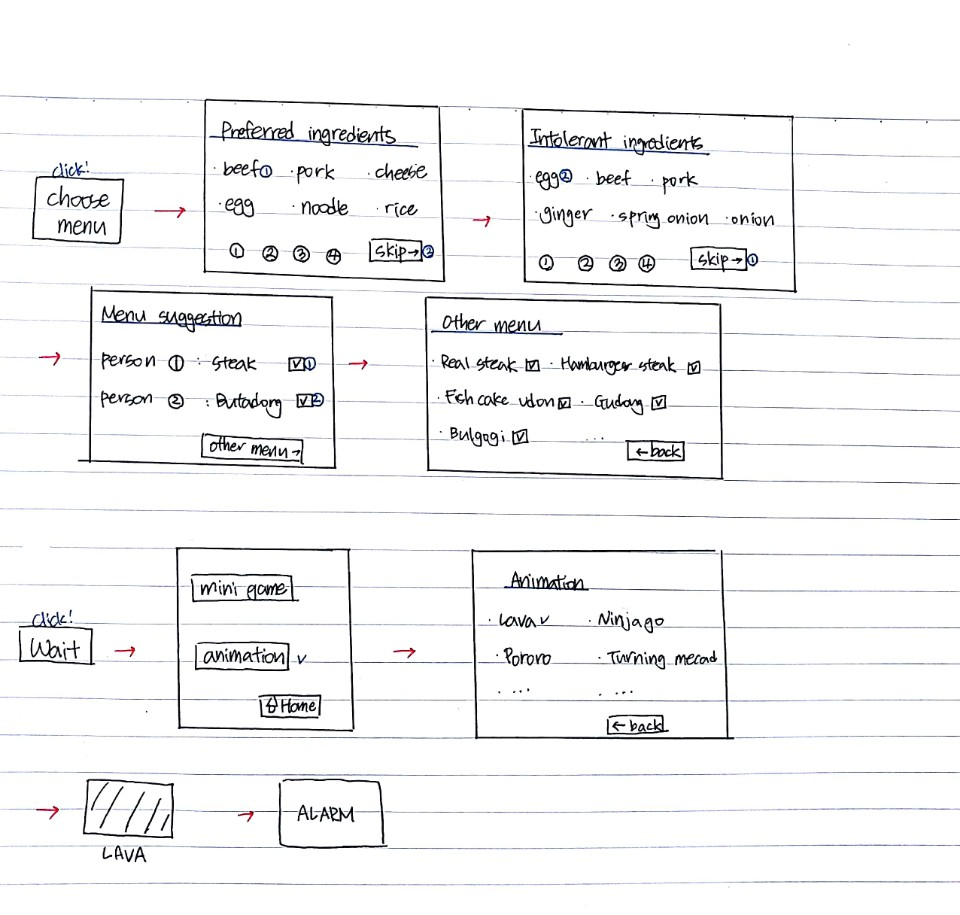 click!
choose
menu
Preferred ingredients
· beef① · pork · cheese
· egg · noodle · rice
① ② ③ ④ skip→②
Intolerant ingredients
· egg② · beef · pork
· ginger · spring onion · onion
① ② ③ ④ skip→①
Menu suggestion
person ① : steak ☑①
person ② : Butadong ☑②
other menu→
Other menu
· Real steak ☑ · Hamburger steak ☑
· Fish cake udon ☑ · Gudong ☑
· Bulgogi ☑ ...
←back
click!
Wait
mini game
animation ✓
Home
Animation
· Lava ✓ · Ninjago
· Pororo · Turning mecad
· ... · ...
←back
LAVA
ALARM